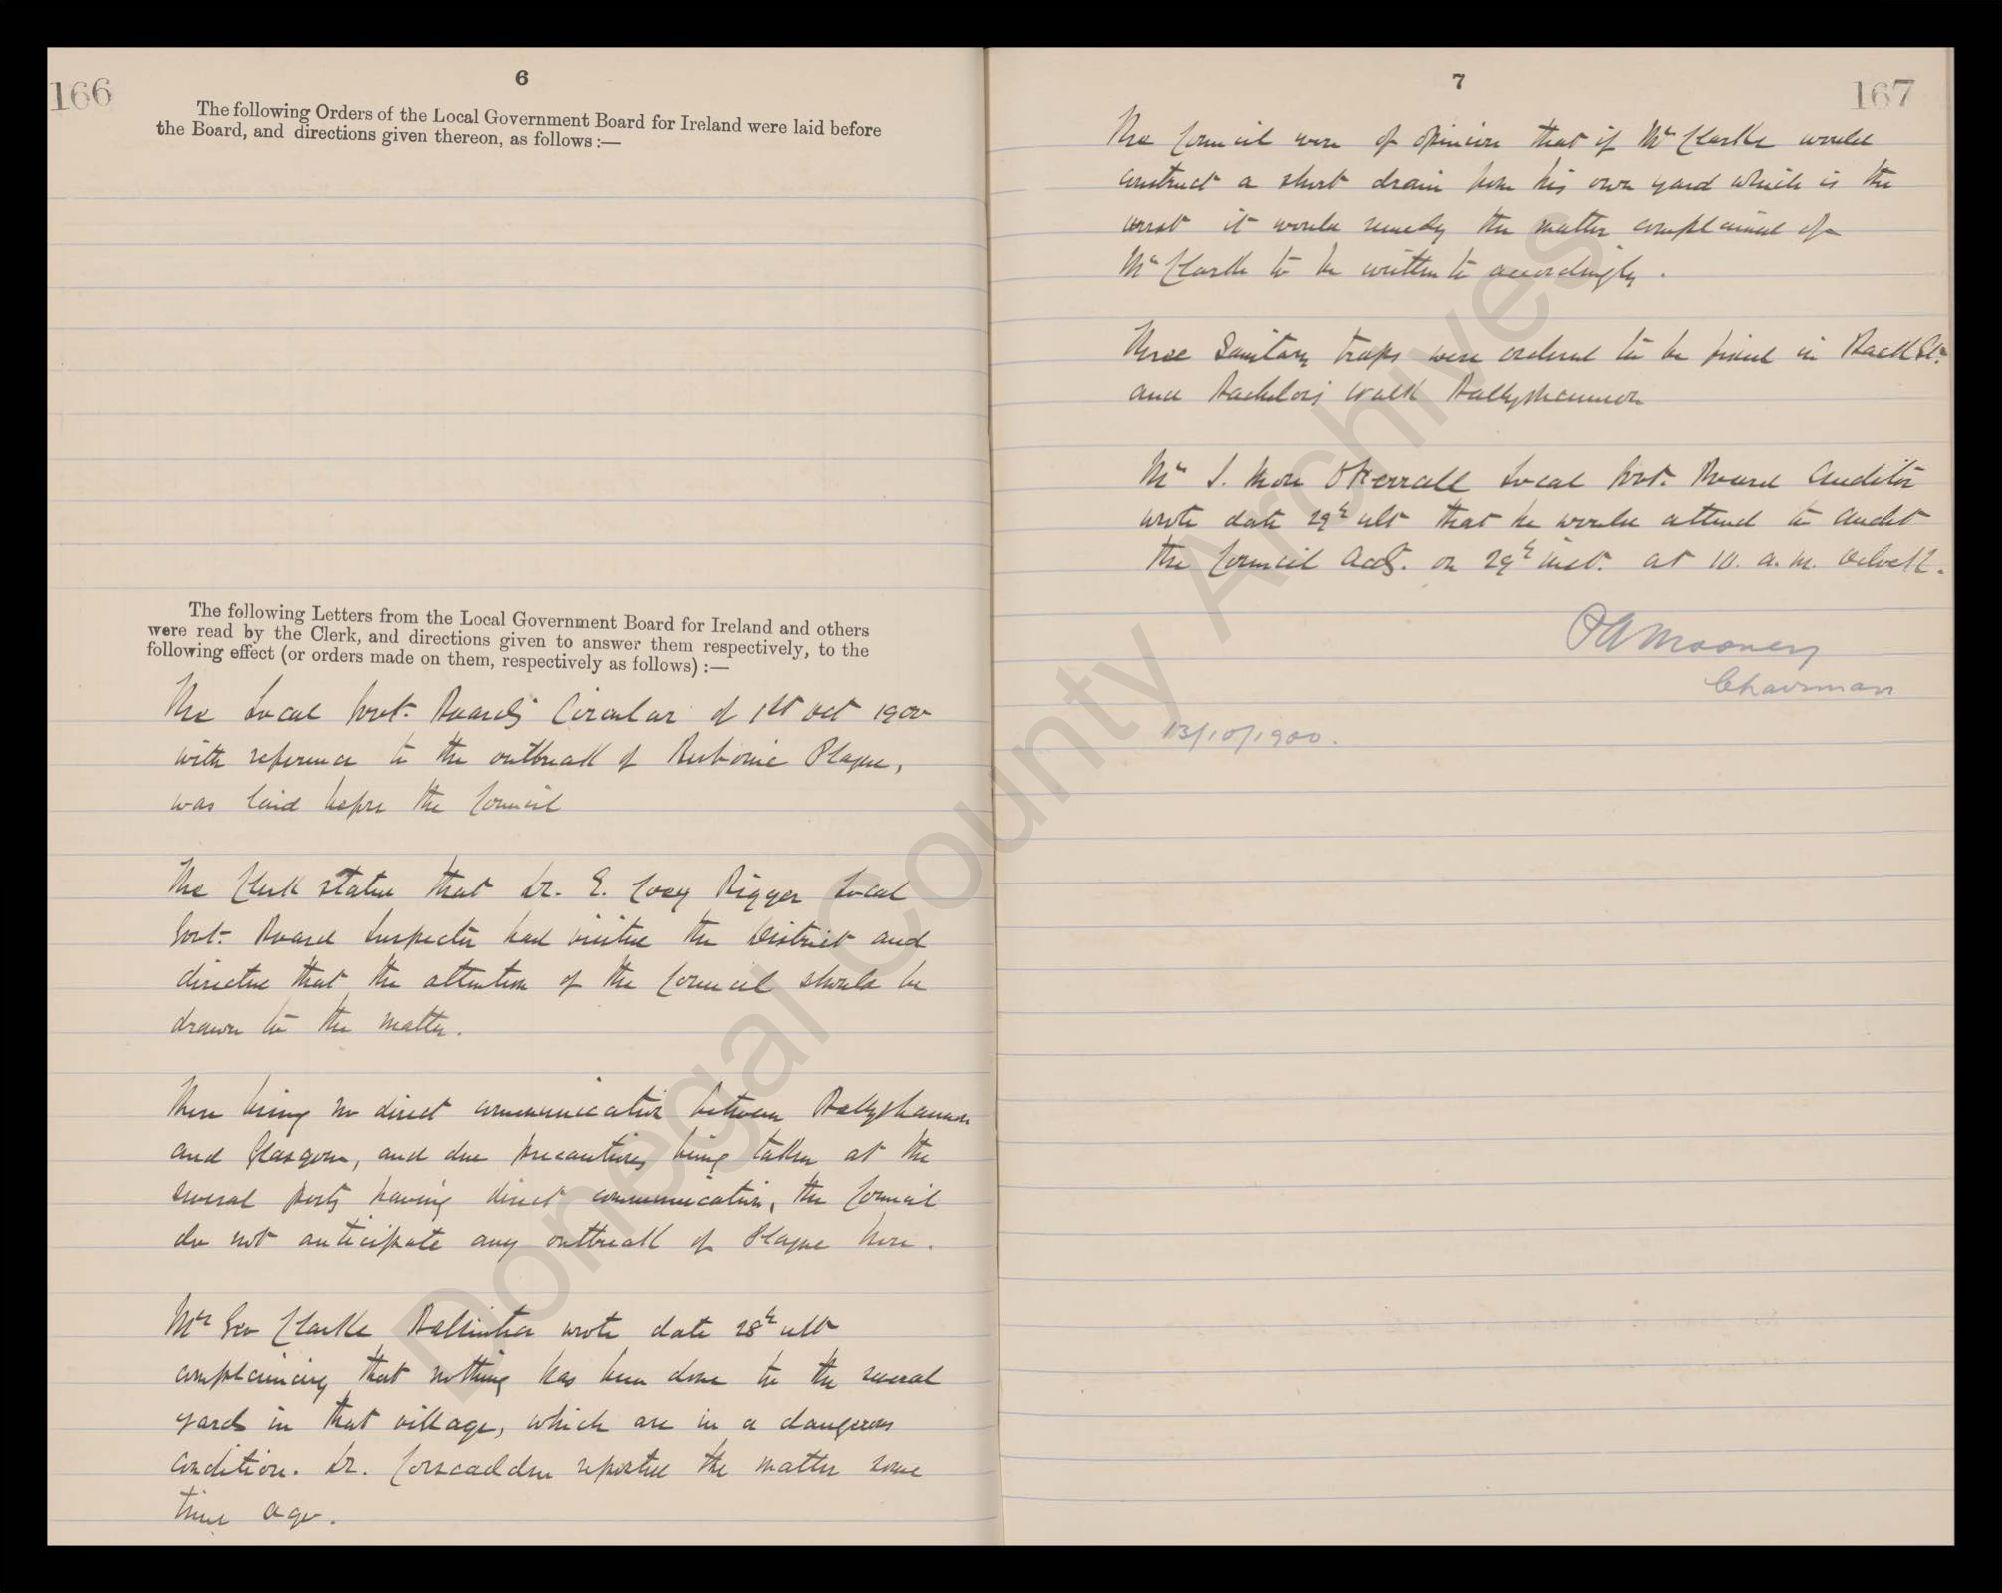 166
6
The following Orders of the Local Government Board for Ireland were laid before
the Board, and directions given thereon, as follows :—
The following Letters from the Local Government Board for Ireland and others
were read by the Clerk, and directions given to answer them respectively, to the
following effect (or orders made on them, respectively as follows) :—
The Local Govt. Board's Circular of 1st Oct 1900
with reference to the outbreak of Bubonic Plague,
was laid before the Council
The Clerk stated that Dr. E. Coey Bigger Local
Govt. Board Inspector had visited the District and
directed that the attention of the Council should be
drawn to the matter.
There being no direct communication between Ballyshannon
and Glasgow, and due precautions being taken at the
several ports having direct communication, the Council
do not anticipate any outbreak of Plague here.
Mr Geo Clarke Ballintra wrote date 28th ult
complaining that nothing has been done to the several
yards in that village, which are in a dangerous
condition. Dr. Corscadden reported the matter some
time ago.
7
167
The Council were of opinion that if Mr Clarke would
construct a short drain from his own yard which is the
worst it would remedy the matter complained of
Mr Clarke to be written to accordingly.
Three Sanitary traps were ordered to be fixed in Back St.
and Bachelors Walk Ballyshannon
Mr J. More O'Ferrall Local Govt. Board Auditor
wrote date 29th ult that he would attend to audit
the Council Accts. on 29th inst. at 10. a.m. oclock.
P A Mooney
Chairman
13/10/1900.
Donegal County Archives